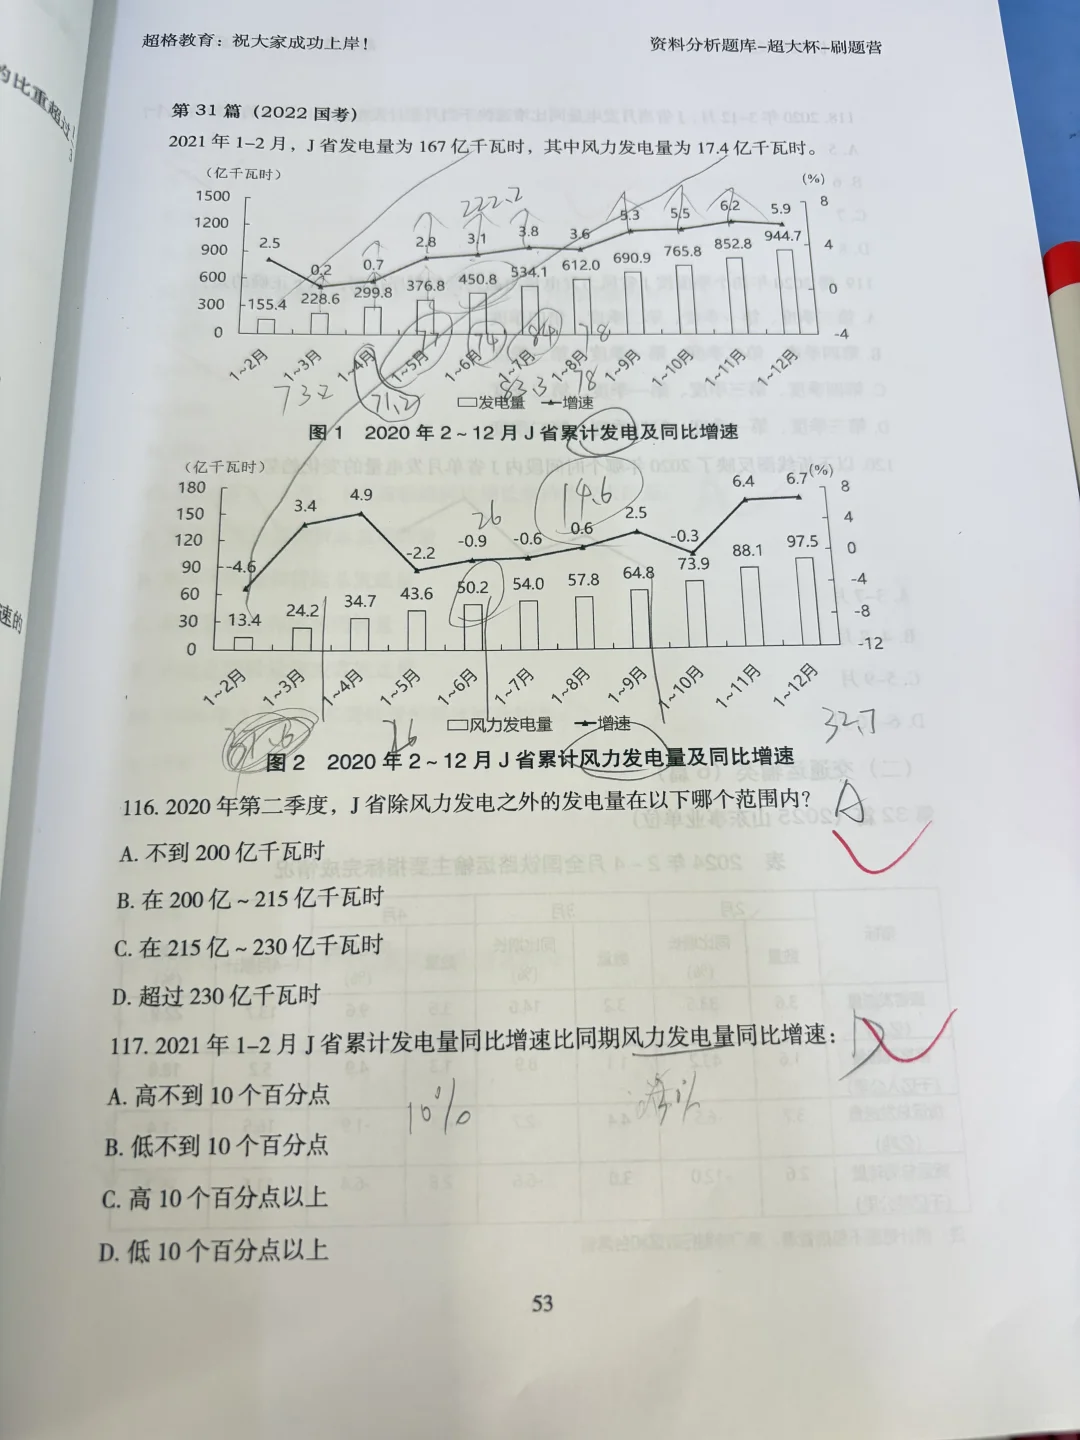 的比重超过
速的
超格教育：祝大家成功上岸！ 资料分析题库-超大杯-刷题营
第 31 篇（2022 国考）
2021 年 1-2 月，J 省发电量为 167 亿千瓦时，其中风力发电量为 17.4 亿千瓦时。
（亿千瓦时） (%)
1500 1200 900 600 300 0
8 4 0 -4
2.5 0.2 0.7 2.8 3.1 3.8 3.6 5.3 5.5 6.2 5.9
155.4 228.6 299.8 376.8 450.8 534.1 612.0 690.9 765.8 852.8 944.7
222.2
77 74 84 78
1~2月 1~3月 1~4月 1~5月 1~6月 1~7月 1~8月 1~9月 1~10月 1~11月 1~12月
73.2 71.2 83.3 78
发电量 增速
图 1 2020 年 2～12 月 J 省累计发电及同比增速
（亿千瓦时） (%)
180 150 120 90 60 30 0
8 4 0 -4 -8 -12
-4.6 3.4 4.9 -2.2 -0.9 -0.6 0.6 2.5 -0.3 6.4 6.7
13.4 24.2 34.7 43.6 50.2 54.0 57.8 64.8 73.9 88.1 97.5
26 14.6
1~2月 1~3月 1~4月 1~5月 1~6月 1~7月 1~8月 1~9月 1~10月 1~11月 1~12月
26 32.7
风力发电量 增速
图 2 2020 年 2～12 月 J 省累计风力发电量及同比增速
116. 2020 年第二季度，J 省除风力发电之外的发电量在以下哪个范围内？ A
A. 不到 200 亿千瓦时
B. 在 200 亿～215 亿千瓦时
C. 在 215 亿～230 亿千瓦时
D. 超过 230 亿千瓦时
117. 2021 年 1-2 月 J 省累计发电量同比增速比同期风力发电量同比增速： D
A. 高不到 10 个百分点
B. 低不到 10 个百分点
C. 高 10 个百分点以上
D. 低 10 个百分点以上
10%
53